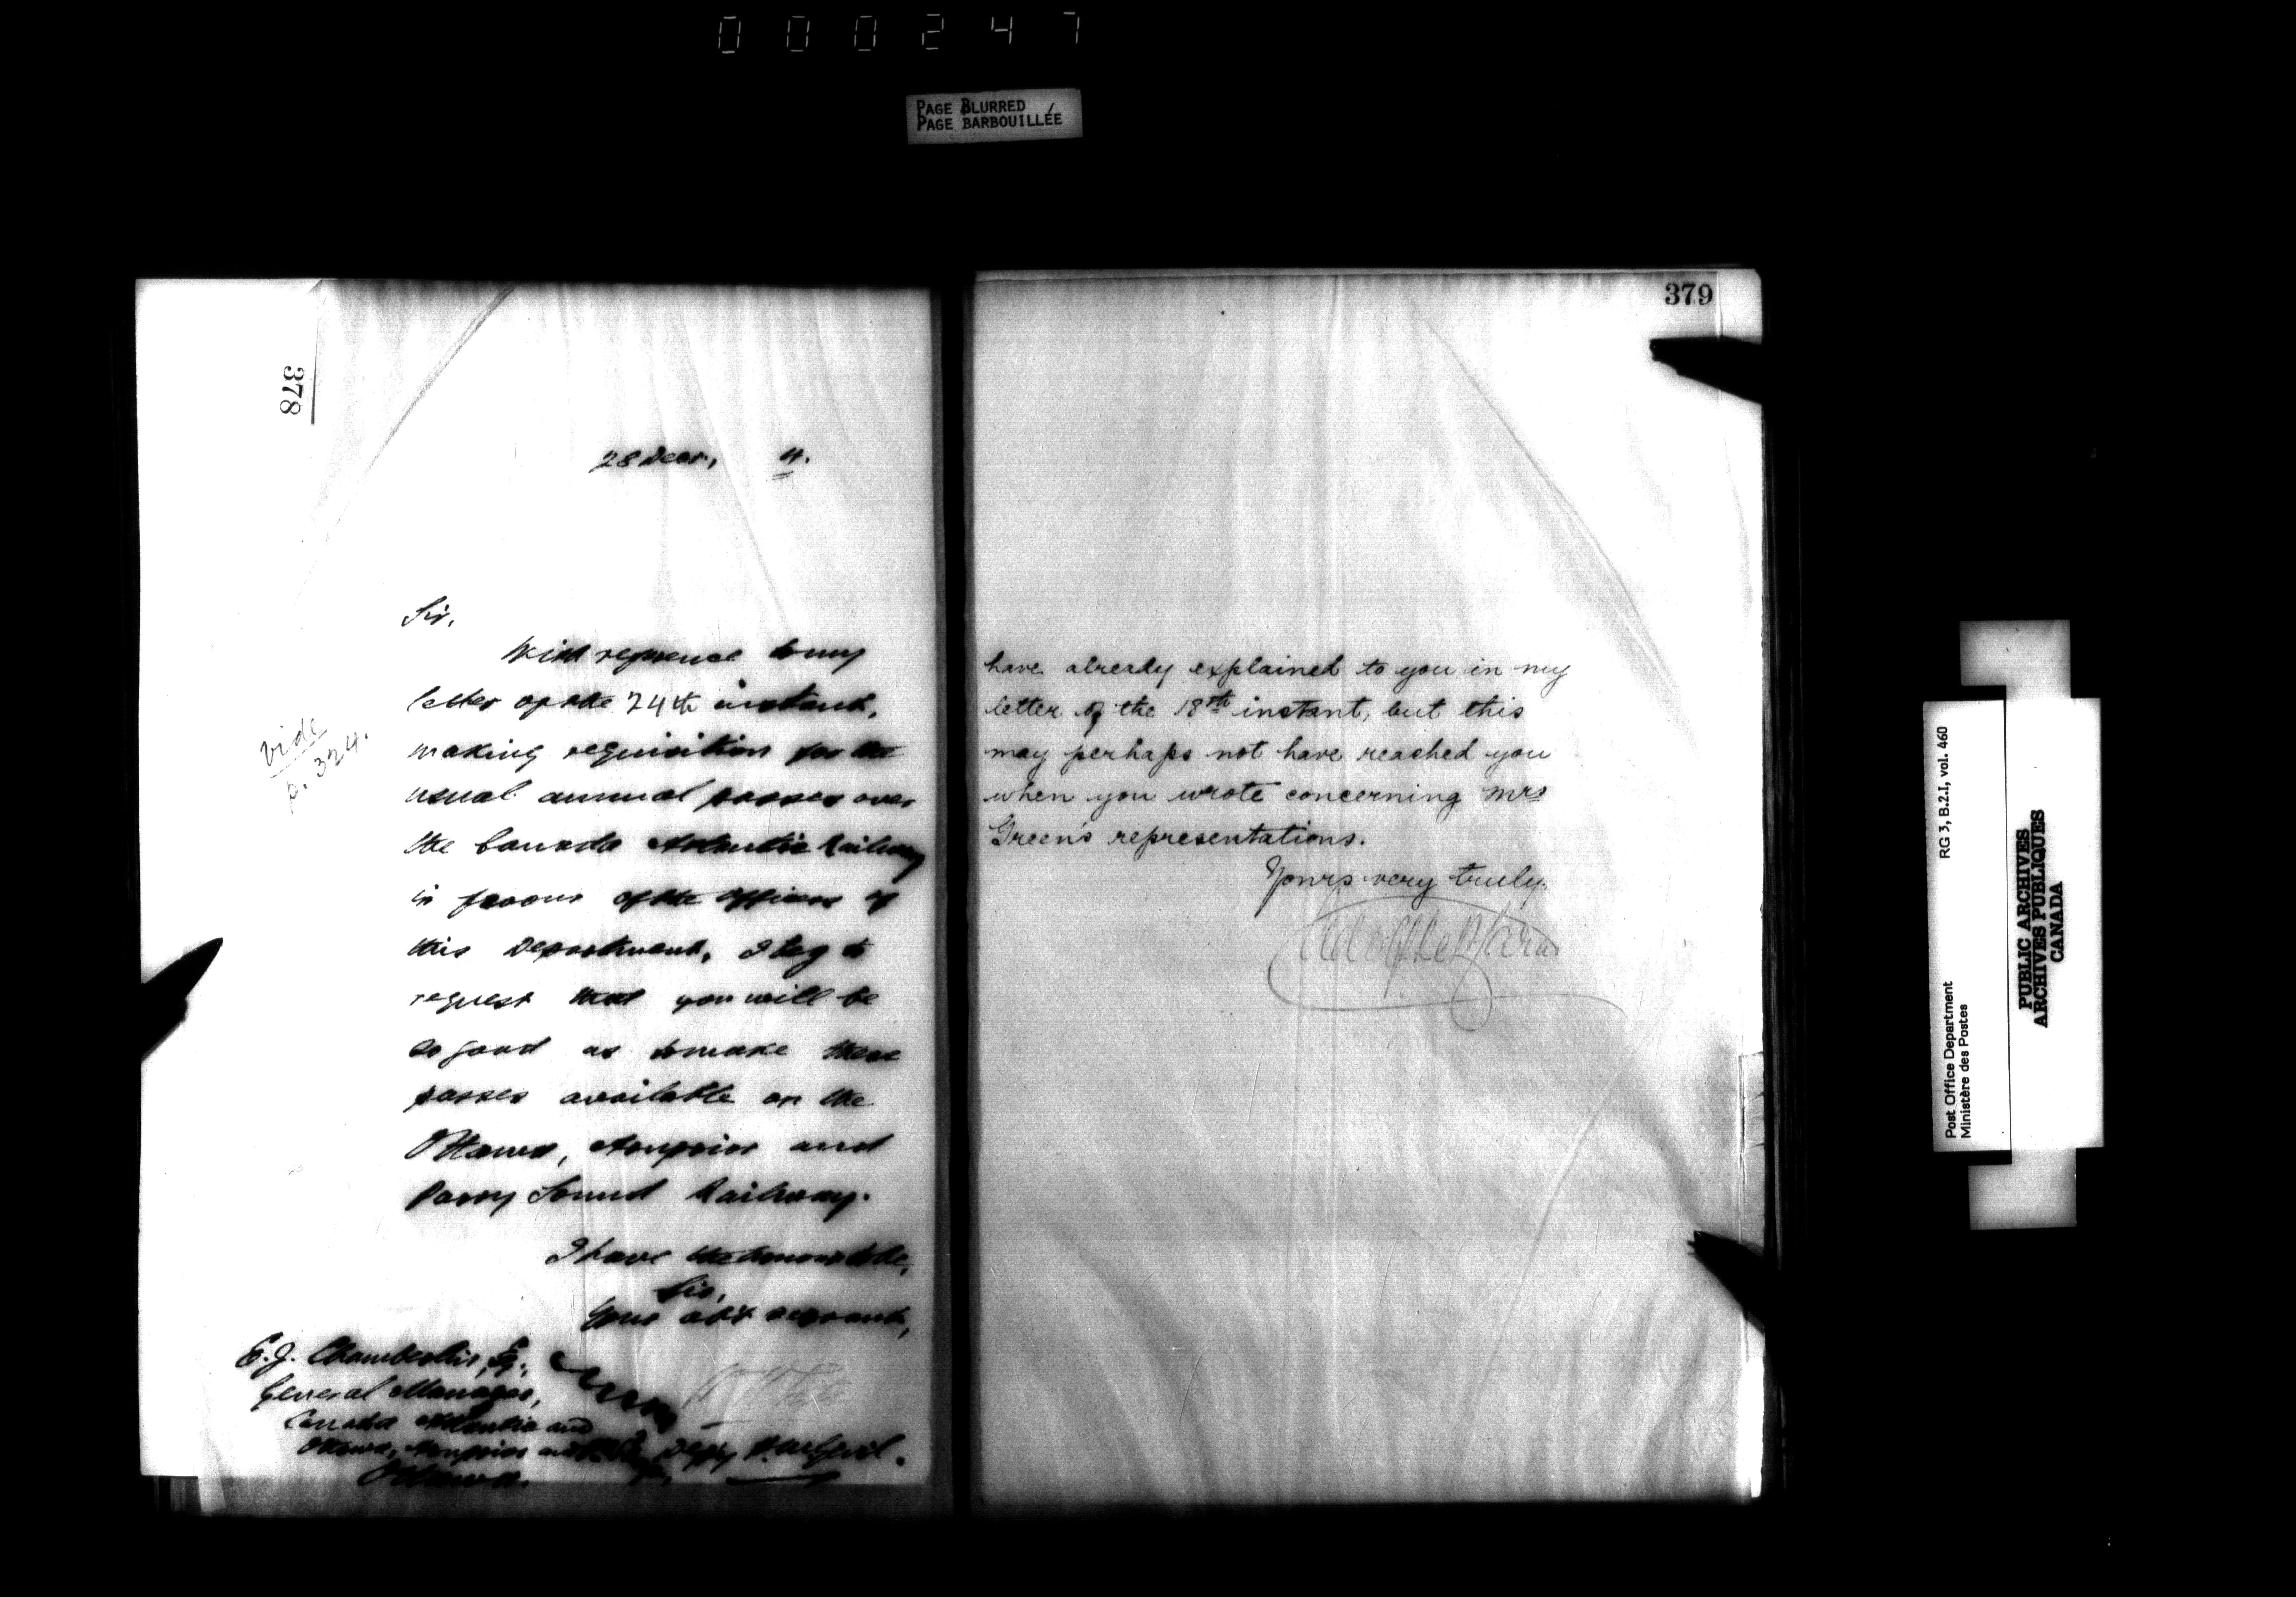 000247
PAGE BLURRED
PAGE BARBOUILLÉE
378
28 Decr., 4.
Sir,
With reference to my
letter of the 24th instant,
making requisition for the
usual annual passes over
the Canada Atlantic Railway
in favour of the Officers of
this Department, I beg to
request that you will be
so good as to make these
passes available on the
Ottawa, Arnprior and
Parry Sound Railway.
I have the honour to be,
Sir,
Your obt servant,
E. J. Chamberlin, Esq.,
General Manager,
Canada Atlantic and
Ottawa, Arnprior and
Ottawa.
Depy P.M. Genl.
vide
p. 324.
379
have already explained to you in my
letter of the 18th instant, but this
may perhaps not have reached you
when you wrote concerning Mrs
Green's representations.
Yours very truly.
Adolphe P. Caron
Post Office Department
Ministère des Postes
RG 3, B.2.I, vol. 460
PUBLIC ARCHIVES
ARCHIVES PUBLIQUES
CANADA